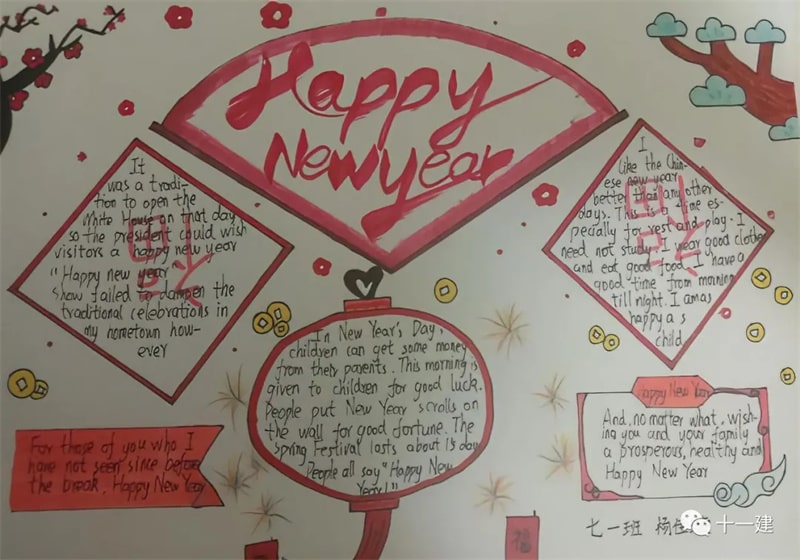 Happy
New year
It
was a tradi-
tion to open the
White House on that day,
so the president could wish
visitors a happy new year
"Happy new year
Show failed to dampen the
traditional celebrations in
my hometown how-
ever
I
like the Chin-
ese new year
better than any other
days. This is a time es-
pecially for rest and play. I
need not study. I wear good clothe
and eat good food. I have a
good time from morning
till night. I am as
happy a s
child
In New Year's Day,
children can get some money
from their parents. This morning is
given to children for good luck.
People put New Year scrolls on
the wall for good fortune. The
spring Festival lasts about 15 day
People all say "Happy New
Year!"
For those of you who I
have not seen since before
the break, Happy New Year
Happy New Year
And, no matter what, wish-
ing you and your family
a prosperous, healthy and
Happy New Year
福
七一班 杨
十一建